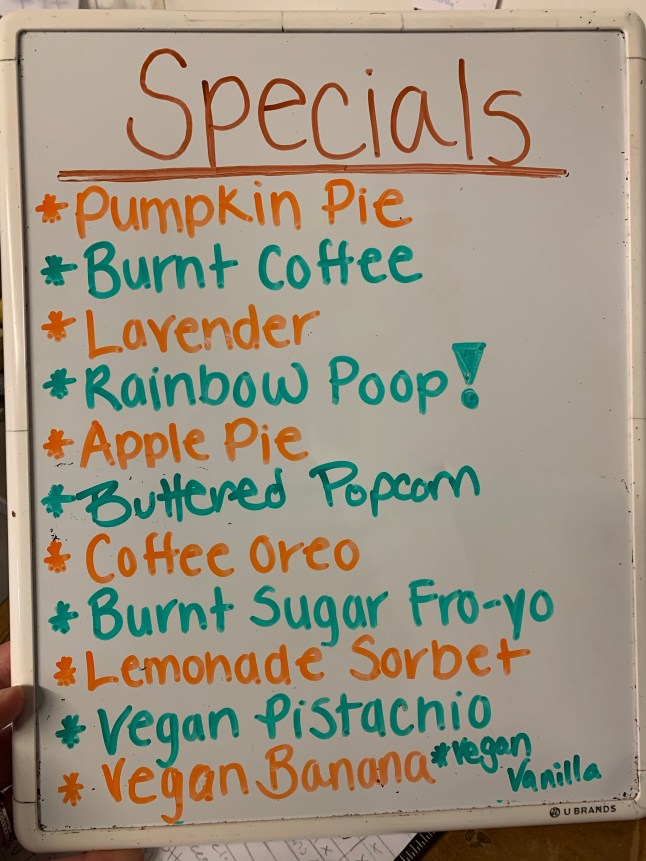 Specials
*Pumpkin Pie
*Burnt Coffee
*Lavender
*Rainbow Poop!
*Apple Pie
*Buttered Popcorn
*Coffee Oreo
*Burnt Sugar Fro-yo
*Lemonade Sorbet
*Vegan Pistachio
*Vegan Banana *Vegan
Vanilla
U BRANDS